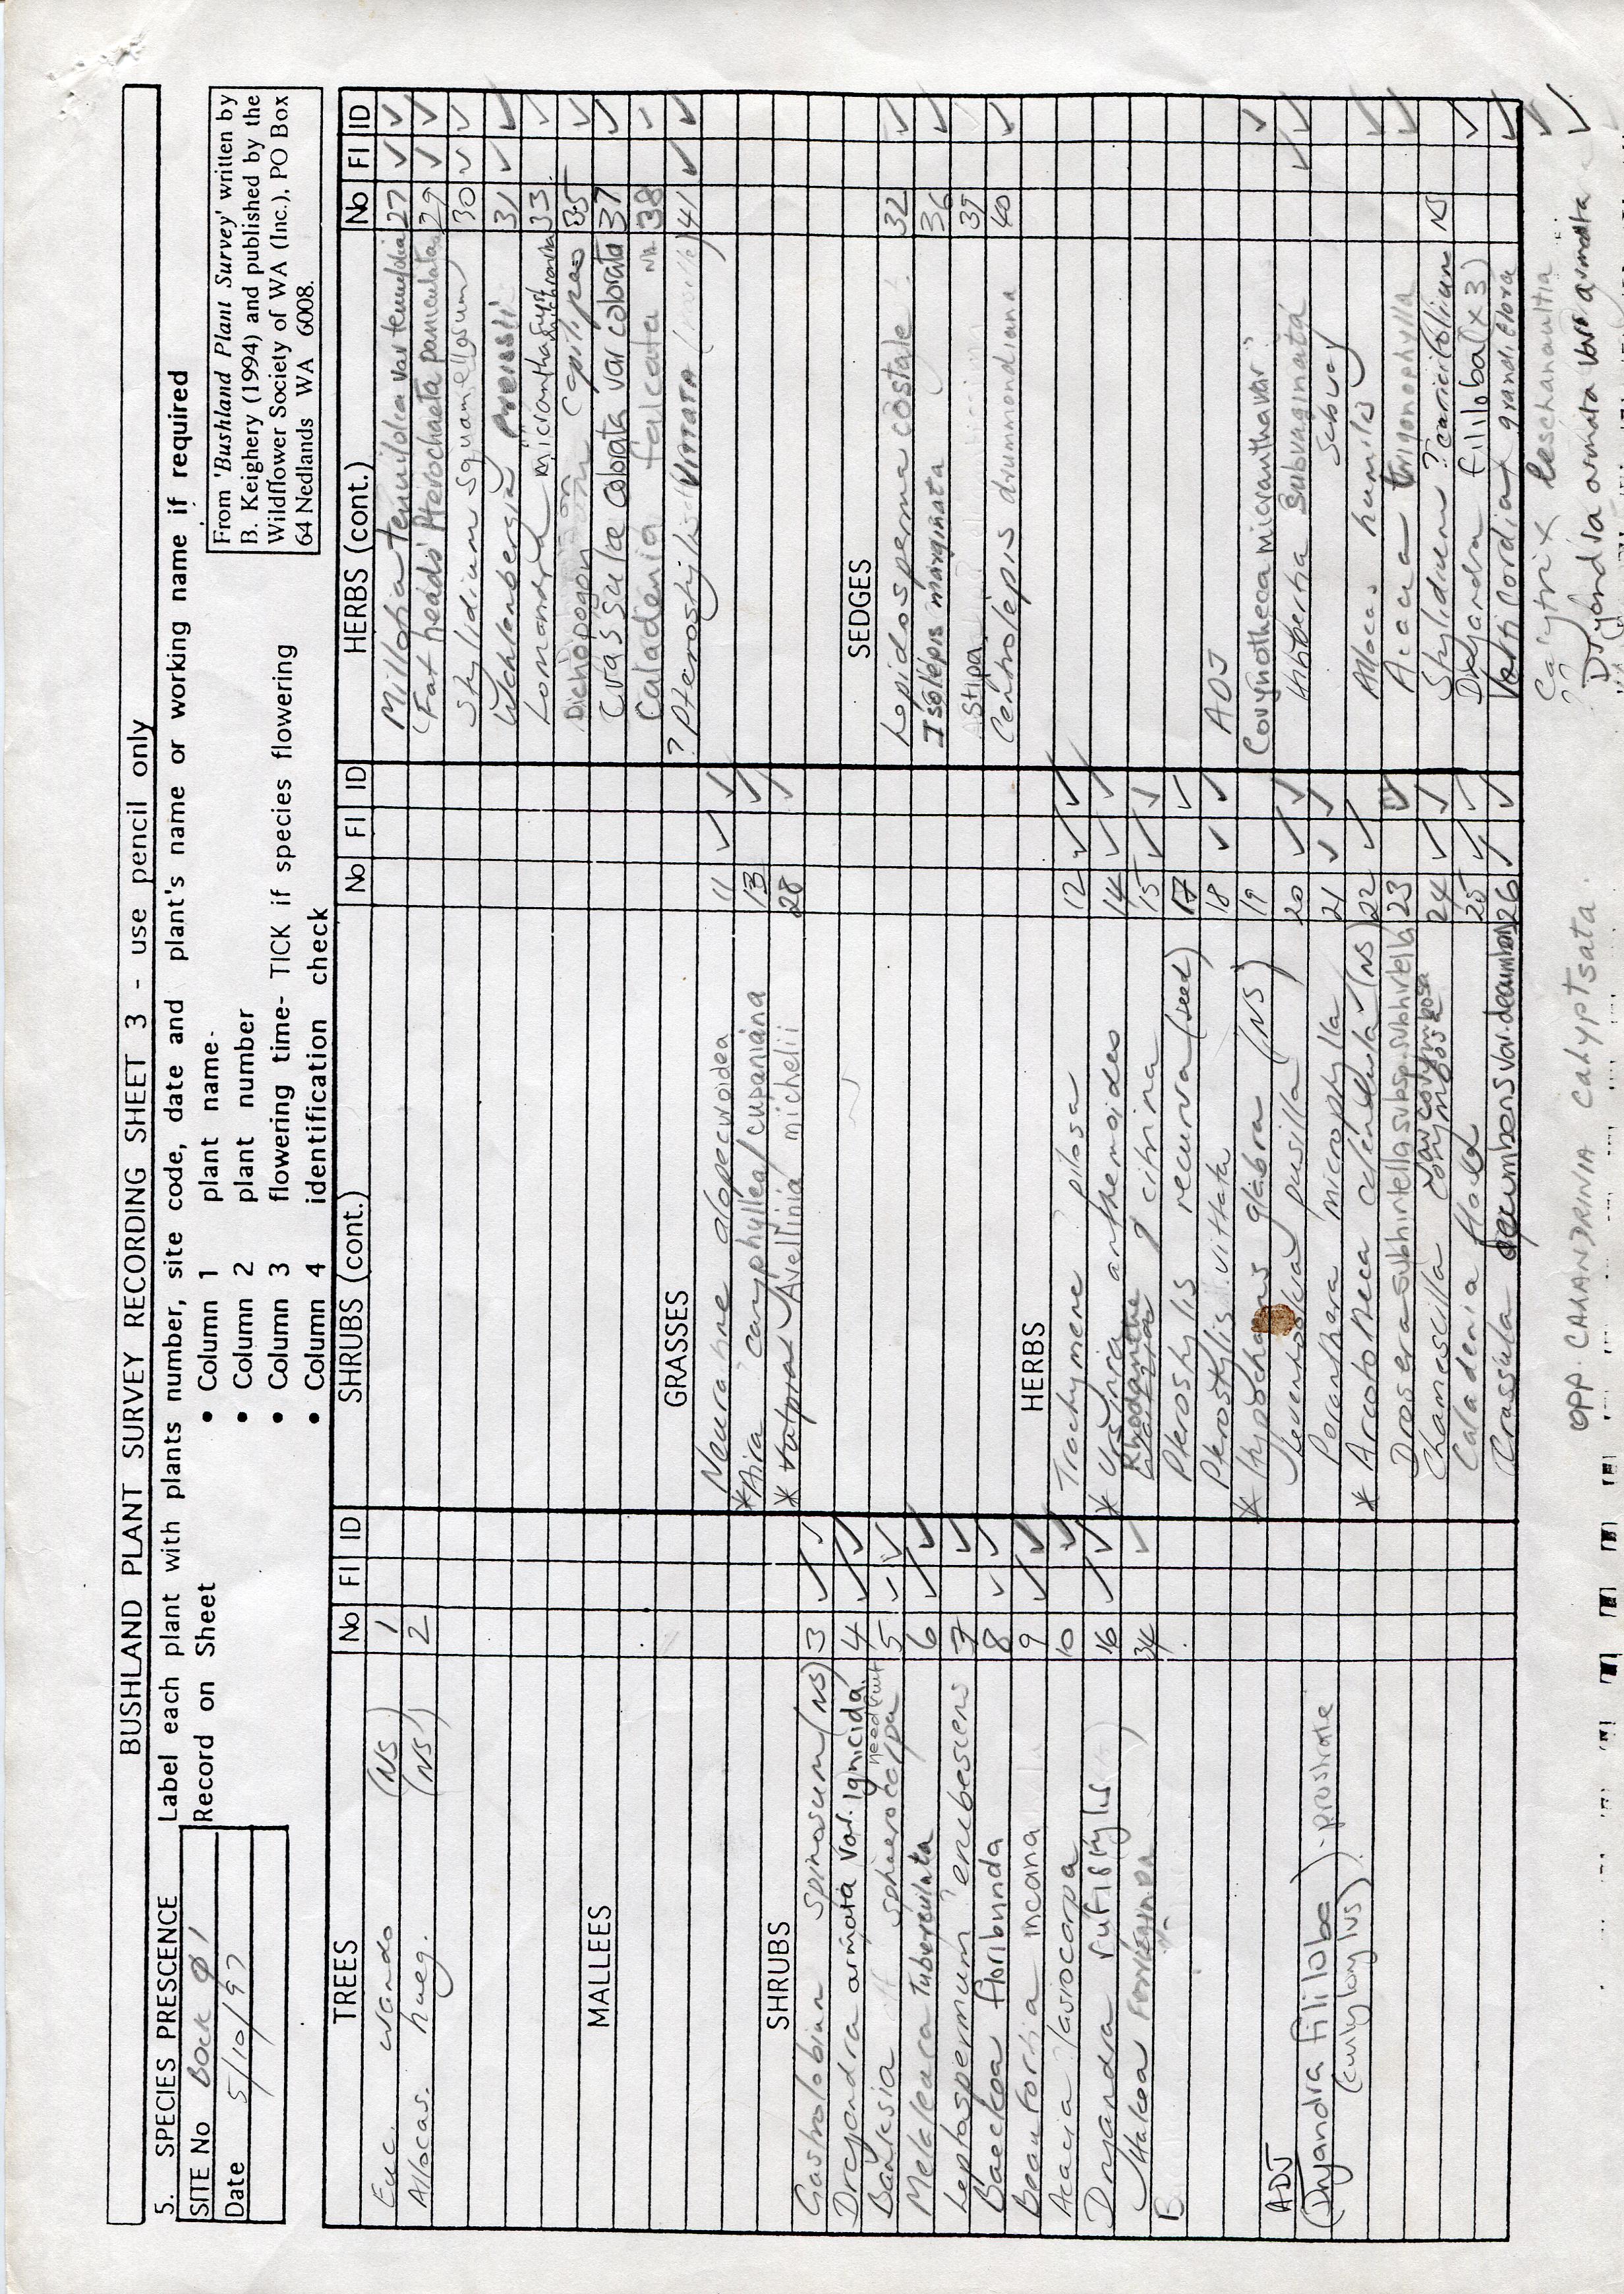 BUSHLAND PLANT SURVEY RECORDING SHEET 3 - use pencil only
5. SPECIES PRESCENCE
SITE No Bock Ø1
Date 5/10/97
Label each plant with plants number, site code, date and plant's name or working name if required
Record on Sheet
• Column 1 plant name-
• Column 2 plant number
• Column 3 flowering time- TICK if species flowering
• Column 4 identification check
From 'Bushland Plant Survey' written by
B. Keighery (1994) and published by the
Wildflower Society of WA (Inc.), PO Box
64 Nedlands WA 6008.
TREES No Fl ID
Euc. wando (NS) 1
Allocas. hueg. (NS) 2
MALLEES
SHRUBS
Gastrolobium spinosum (NS) 3 ✓ ✓
Dryandra armata var. ignicida 4 ✓ ✓
Banksia sphaerocarpa need fruit 5 ✓ ✓
Melaleuca tuberculata 6 ✓ ✓
Leptospermum erubescens 7 ✓
Baeckea floribunda 8 ✓ ✓
Beaufortia incana 9 ✓ ✓
Acacia lasiocarpa 10 ✓
Dryandra rufistylis 16 ✓ ✓
Hakea 34 ✓
B
ADJ
(Dryandra fililoba) - prostrate
(curly long lvs)
SHRUBS (cont.) No Fl ID
GRASSES
Neurachne alopecuroidea 11 ✓ ✓
* Aira caryphyllea/cupaniana 13 ✓
* Vulpia Avellinia michelii 28 ✓
HERBS
Trachymene pilosa 12 ✓ ✓
* Ursinia anthemoides 14 ✓ ✓
Rhodanthe citrina 15 ✓ ✓
Pterostylis recurva (seed) 17 ✓
Pterostylis vittata 18 ✓ ✓
* Hypochaeris glabra (NS) 19
Levenhookia pusilla 20 ✓ ✓
Poranthera microphylla 21 ✓ ✓
* Arctotheca calendula (NS) 22 ✓
Drosera subhirtella subsp. subhirtella 23 ✓
Chamaescilla corymbosa var corymbosa 24 ✓ ✓
Caladenia flava 25 ✓ ✓
Crassula decumbens var. decumbens 26 ✓ ✓
HERBS (cont.) No Fl ID
Millotia tenuifolia var tenuifolia 27 ✓ ✓
(Fat heads) Pterochaeta paniculata 29 ✓ ✓
Stylidium squamellosum 30 ✓ ✓
Wahlenbergia preissii 31 ✓ ✓
Lomandra micrantha 33 ✓
Dichopogon capilipes 35 ✓
Crassula colorata var colorata 37 ✓
Caladenia falcata 38 ✓
? Pterostylis vittata 41 ✓ ✓
SEDGES
Lepidosperma costale 32 ✓
Isolepis marginata 36 ✓
Stipa 39
Centrolepis drummondiana 40 ✓
ADJ
Corynotheca micrantha var. ✓
Hibbertia subvaginata ✓ ✓
Allocas humilis ✓
Acacia trigonophylla ✓
Stylidium ?caricifolium NS
Dryandra fililoba (x 3) ✓
Verticordia grandiflora ✓
Calytrix leschenaultia ✓
?? Dryandra armata var armata ✓
OPP. CALANDRINIA calyptrata.